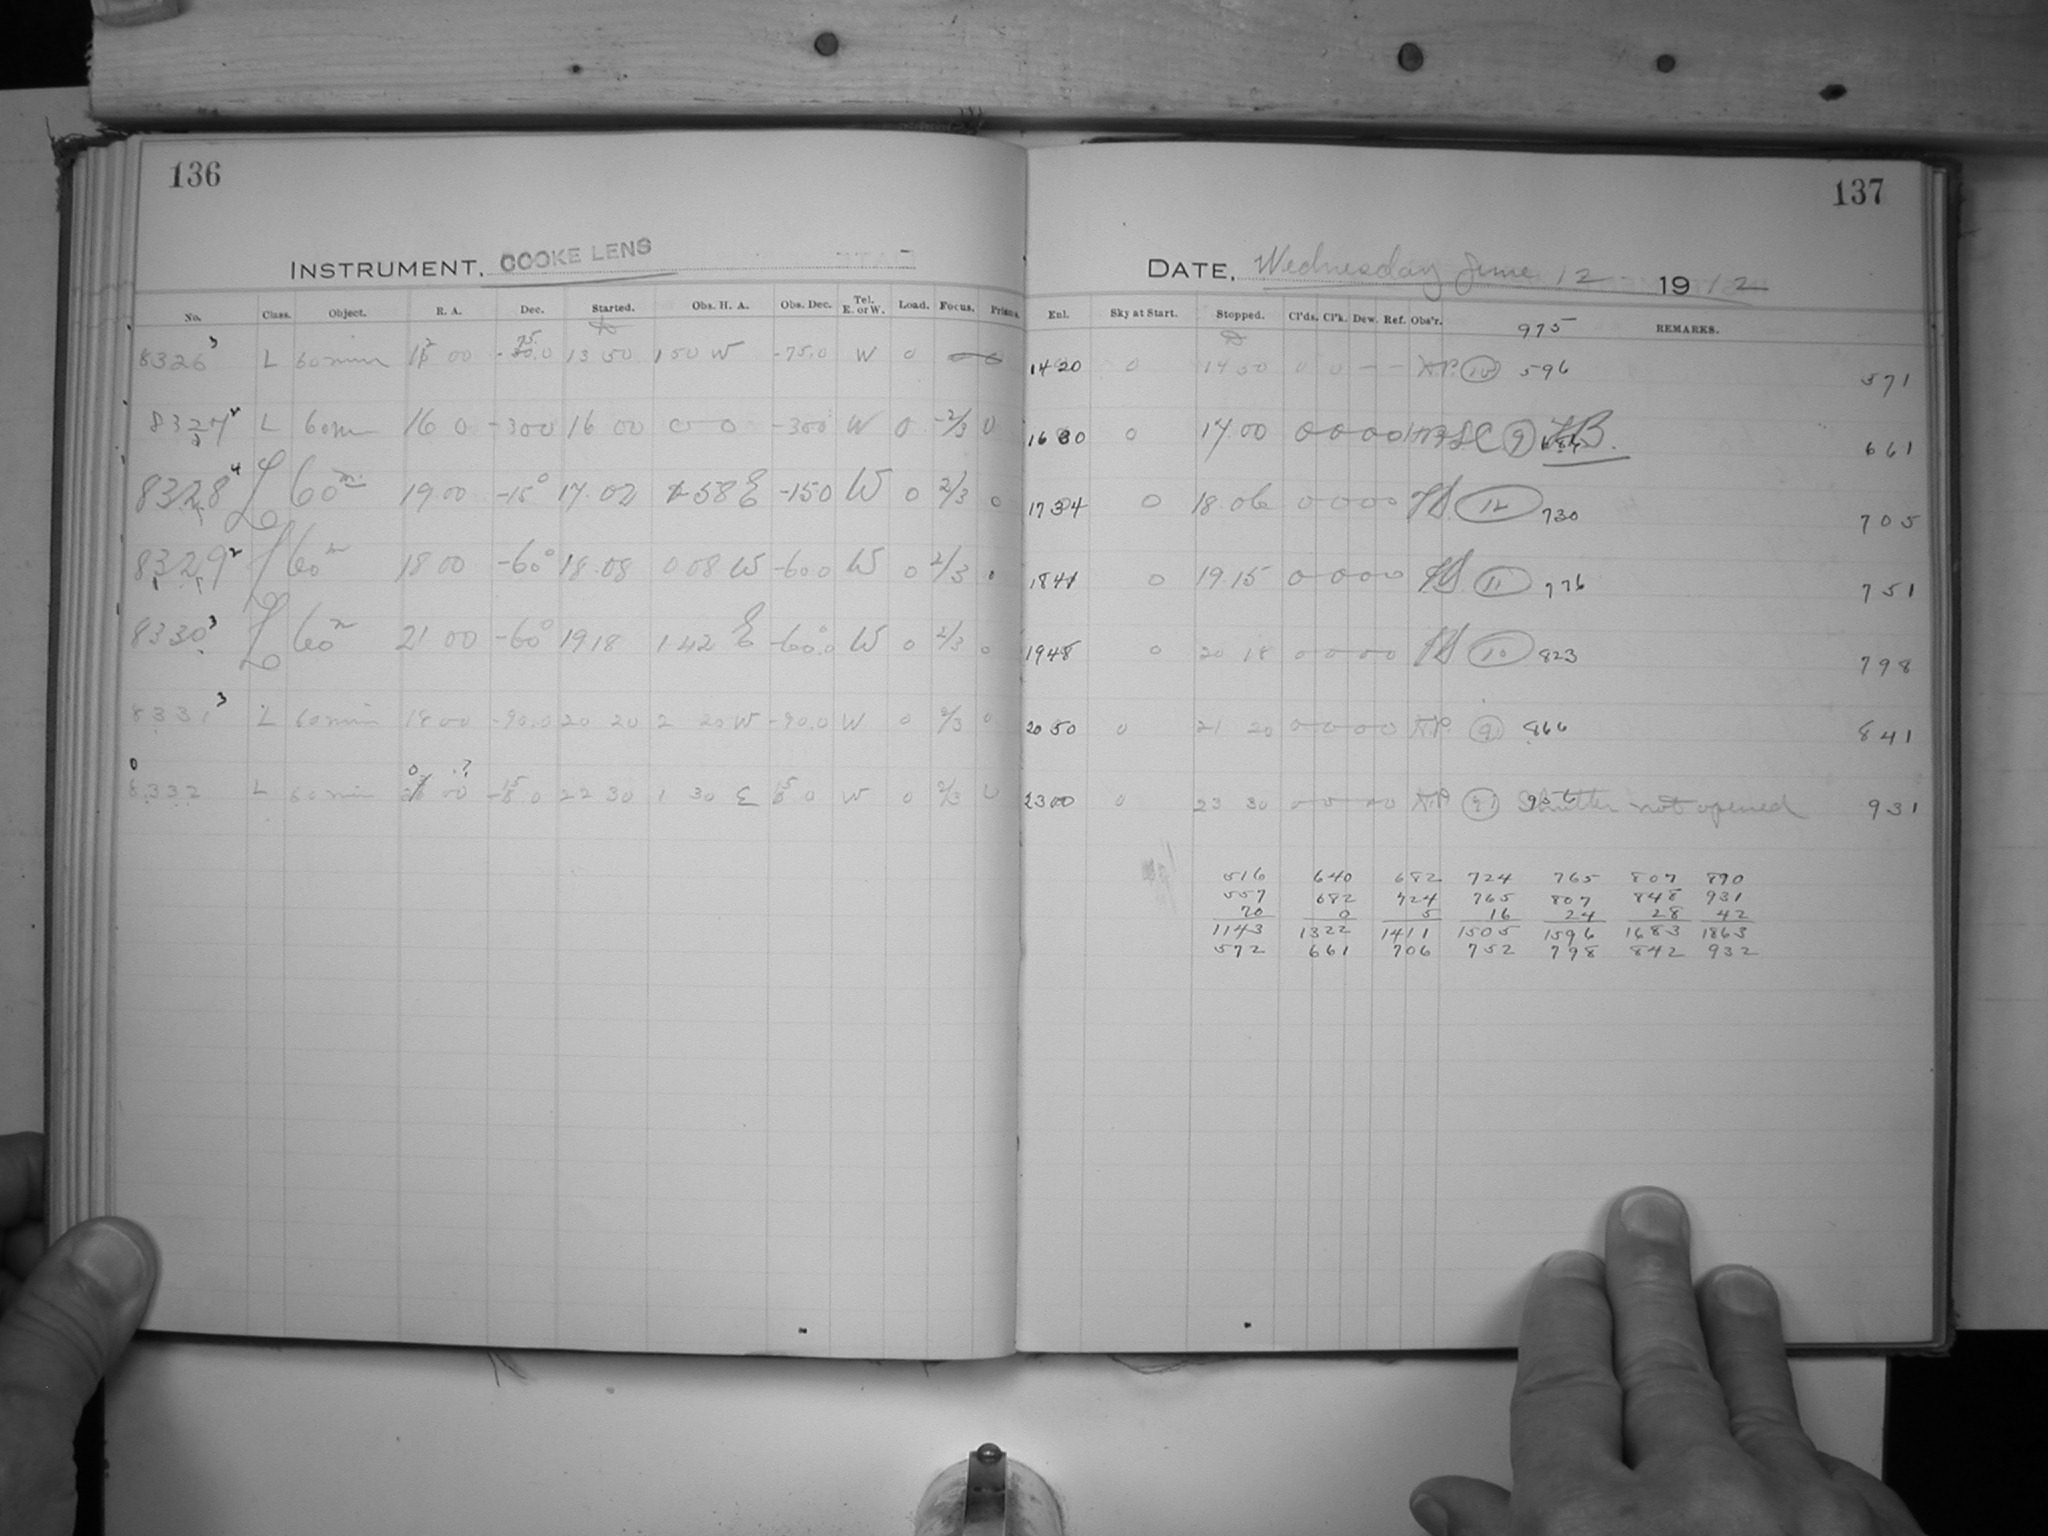 136
INSTRUMENT, COOKE LENS
No. Class. Object. R. A. Dec. Started. Obs. H. A. Obs. Dec. Tel. E. or W. Load. Focus. Prisms.
8326 3 L 60 min 00 75 13 50 1 50 W -75.0 W 0
8327 L 60m 16 0 -300 16 00 0-0 -300 W 0 -2/3 0
8328 4 L 60m 19.00 -15° 17.02 58 E -150 W 0 2/3 0
8329 2 L 60m 18 00 -60° 18.08 0 08 W -60.0 W 0 2/3 0
8330 3 L 60m 21 00 -60° 19 18 1 42 E -60.0 W 0 2/3 0
8331 3 L 60 min 18 00 -90.0 20 20 2 20 W -90.0 W 0 2/3 0
8332 0 L 60 min 0 00 .? 15 22 30 1 30 E 15 W 0 2/3 0
137
DATE, Wednesday June 12 1912
Enl. Sky at Start. Stopped. Cl'ds. Cl'k. Dew. Ref. Obs'r. 975 REMARKS.
1420 0 14 50 0 0 - - 10 596 571
16 30 0 17.00 0 0 0 0 9 661
1734 0 18.06 0 0 0 0 12 730 705
1841 0 19.15 0 0 0 0 11 776 751
1948 0 20 18 0 0 0 0 10 823 798
20 50 0 21 20 0 0 0 0 9 866 841
2300 0 23 30 0 0 0 0 9 956 Shutter not opened 931
516 640 682 724 765 807 890
557 682 724 765 807 848 931
70 0 5 16 24 28 42
1143 1322 1411 1505 1596 1683 1863
572 661 706 752 798 842 932